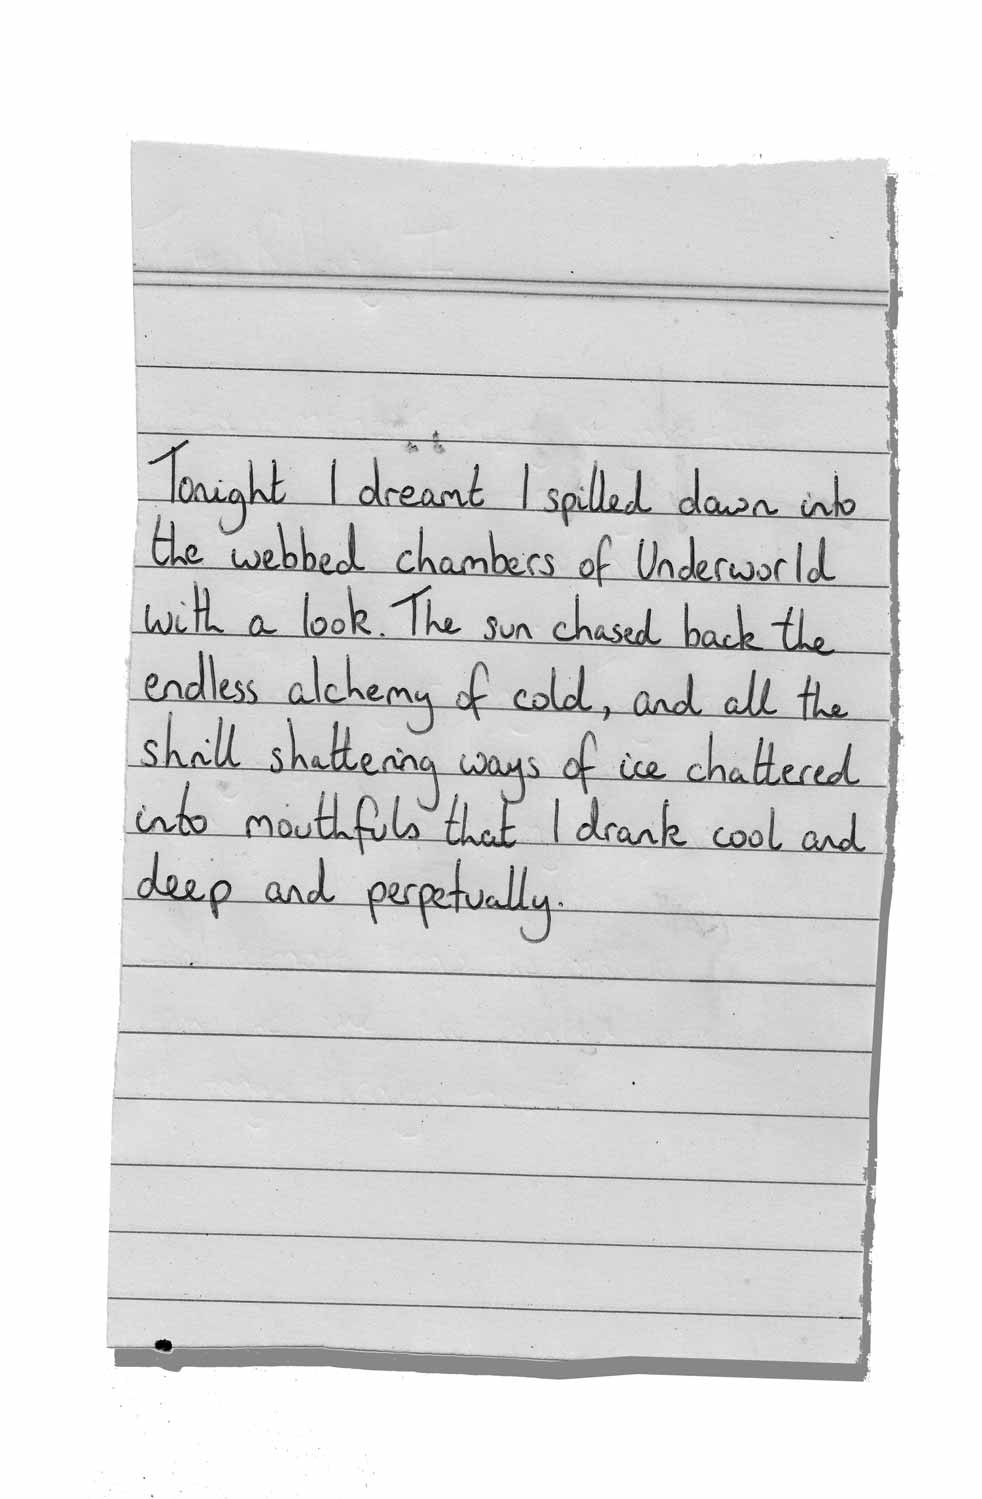 Tonight I dreamt I spilled down into
the webbed chambers of Underworld
with a look. The sun chased back the
endless alchemy of cold, and all the
shrill shattering ways of ice chattered
into mouthfuls that I drank cool and
deep and perpetually.